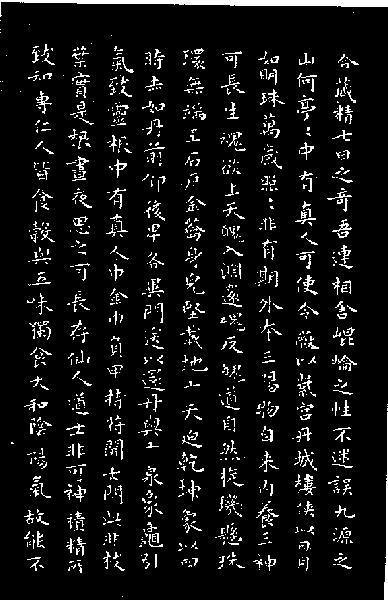 合藏精七日之奇吾連相舍崐崘之性不迷誤九源之
山何亭〻中有真人可使令蔽以紫宮丹城樓俠以日月
如明珠萬歲照〻非有期外本三陽物自来内養三神
可長生魂欲上天魄入淵還魂反魄道自然旋璣懸珠
環無端玉石戶金籥身皃堅載地玄天迫乾坤象以四
時赤如丹前仰後卑各異門送以還丹與玄泉象龜引
氣致靈根中有真人巾金巾負甲持符開七門此非枝
葉實是根晝夜思之可長存仙人道士非可神積精所
致和專仁人皆食穀與五味獨食大和陰陽氣故能不